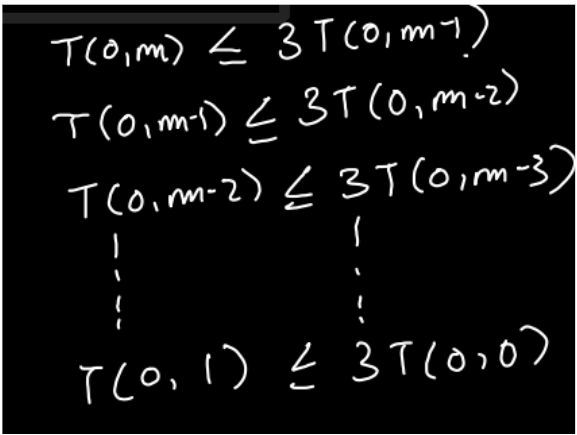 T(0,m) ≤ 3T(0,m-1)
T(0,m-1) ≤ 3T(0,m-2)
T(0,m-2) ≤ 3T(0,m-3)
T(0,1) ≤ 3T(0,0)